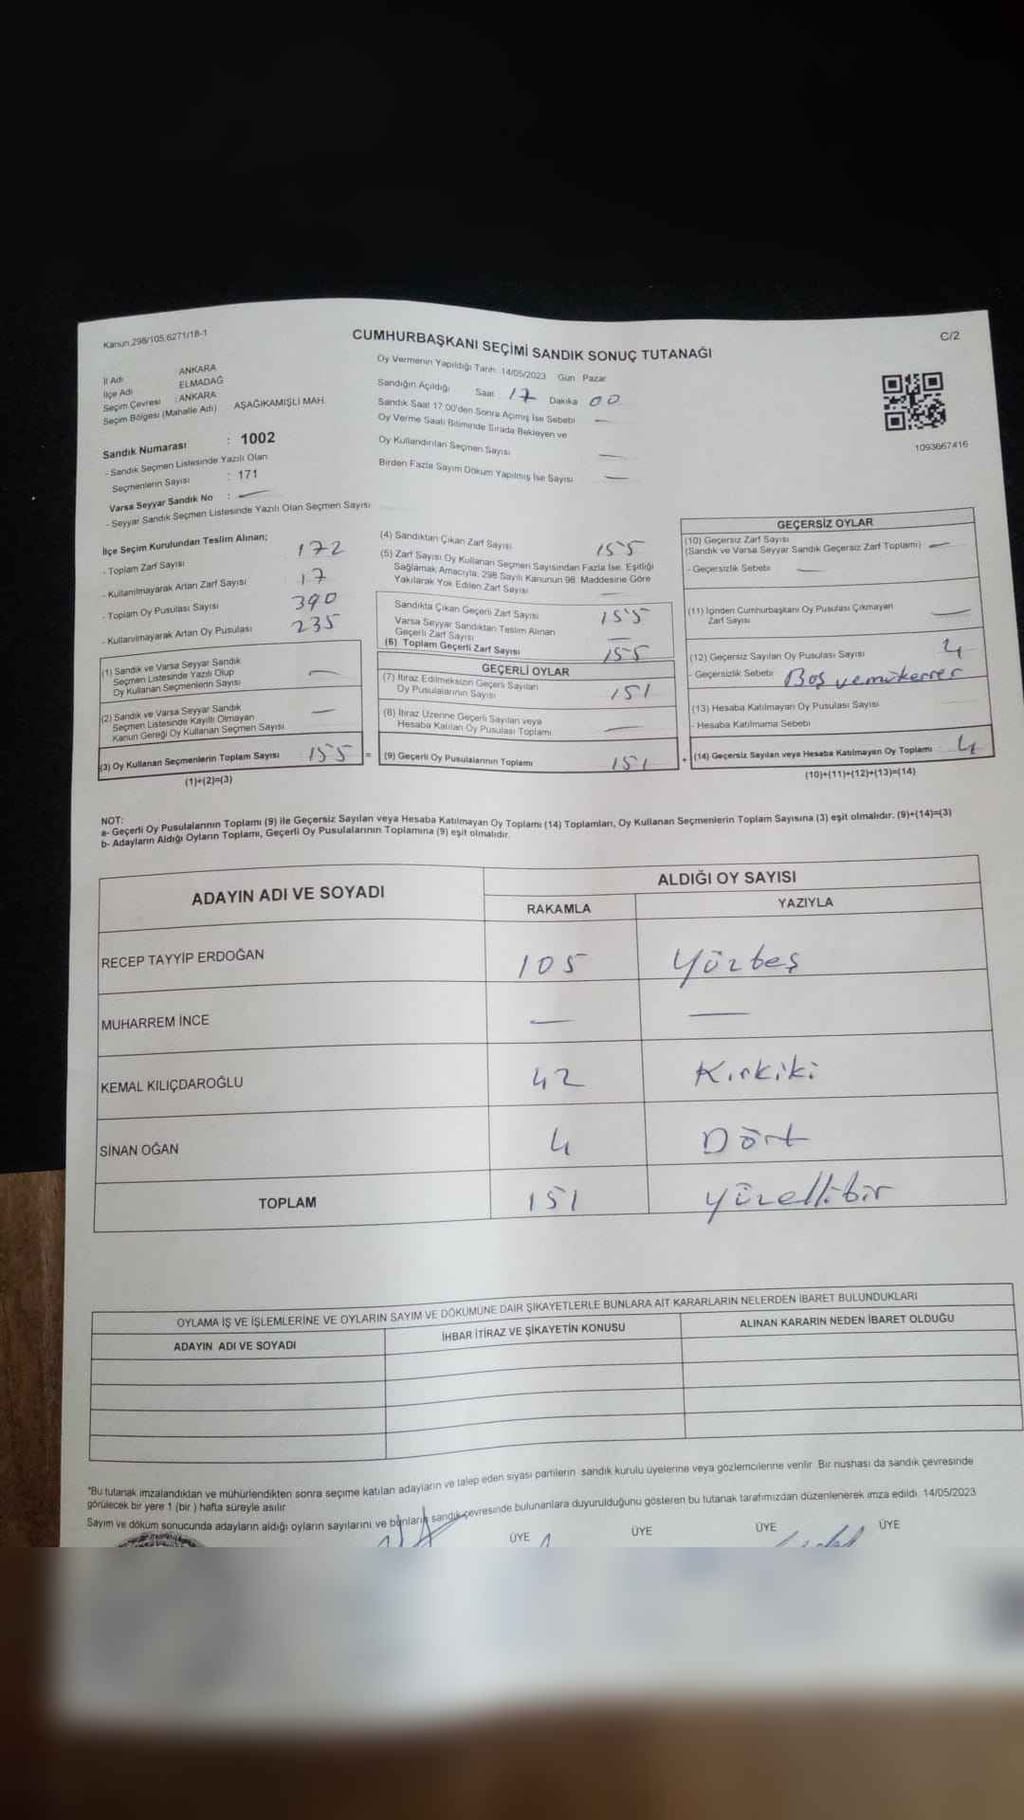 Kanun.298/105.6271/18-1
CUMHURBAŞKANI SEÇİMİ SANDIK SONUÇ TUTANAĞI
C/2
Oy Vermenin Yapıldığı Tarih: 14/05/2023 Gün Pazar
İl Adı : ANKARA
İlçe Adı : ELMADAĞ
Seçim Çevresi : ANKARA
Seçim Bölgesi (Mahalle Adı) AŞAĞIKAMIŞLI MAH.
Sandık Numarası : 1002
- Sandık Seçmen Listesinde Yazılı Olan
Seçmenlerin Sayısı : 171
Varsa Seyyar Sandık No : —
- Seyyar Sandık Seçmen Listesinde Yazılı Olan Seçmen Sayısı
Sandığın Açıldığı Saat 17 Dakika 00
Sandık Saat 17:00'den Sonra Açılmış İse Sebebi —
Oy Verme Saati Bitiminde Sırada Bekleyen ve
Oy Kullandırılan Seçmen Sayısı —
Birden Fazla Sayım Döküm Yapılmış İse Sayısı —
1093667416
İlçe Seçim Kurulundan Teslim Alınan;
- Toplam Zarf Sayısı 172
- Kullanılmayarak Artan Zarf Sayısı 17
- Toplam Oy Pusulası Sayısı 390
- Kullanılmayarak Artan Oy Pusulası 235
(1) Sandık ve Varsa Seyyar Sandık
Seçmen Listesinde Yazılı Olup
Oy Kullanan Seçmenlerin Sayısı —
(2) Sandık ve Varsa Seyyar Sandık
Seçmen Listesinde Kayıtlı Olmayan
Kanun Gereği Oy Kullanan Seçmen Sayısı —
(3) Oy Kullanan Seçmenlerin Toplam Sayısı 155 =
(1)+(2)=(3)
(4) Sandıktan Çıkan Zarf Sayısı 155
(5) Zarf Sayısı Oy Kullanan Seçmen Sayısından Fazla İse, Eşitliği
Sağlamak Amacıyla, 298 Sayılı Kanunun 98. Maddesine Göre
Yakılarak Yok Edilen Zarf Sayısı —
Sandıkta Çıkan Geçerli Zarf Sayısı 155
Varsa Seyyar Sandıktan Teslim Alınan
Geçerli Zarf Sayısı —
(6) Toplam Geçerli Zarf Sayısı 155
GEÇERLİ OYLAR
(7) İtiraz Edilmeksizin Geçerli Sayılan
Oy Pusulalarının Sayısı 151
(8) İtiraz Üzerine Geçerli Sayılan veya
Hesaba Katılan Oy Pusulası Toplamı —
(9) Geçerli Oy Pusulalarının Toplamı 151 +
GEÇERSİZ OYLAR
(10) Geçersiz Zarf Sayısı
(Sandık ve Varsa Seyyar Sandık Geçersiz Zarf Toplamı) —
- Geçersizlik Sebebi —
(11) İçinden Cumhurbaşkanı Oy Pusulası Çıkmayan
Zarf Sayısı —
(12) Geçersiz Sayılan Oy Pusulası Sayısı 4
- Geçersizlik Sebebi Boş ve mükerrer
(13) Hesaba Katılmayan Oy Pusulası Sayısı
- Hesaba Katılmama Sebebi
(14) Geçersiz Sayılan veya Hesaba Katılmayan Oy Toplamı 4
(10)+(11)+(12)+(13)=(14)
NOT:
a- Geçerli Oy Pusulalarının Toplamı (9) ile Geçersiz Sayılan veya Hesaba Katılmayan Oy Toplamı (14) Toplamları, Oy Kullanan Seçmenlerin Toplam Sayısına (3) eşit olmalıdır. (9)+(14)=(3)
b- Adayların Aldığı Oyların Toplamı, Geçerli Oy Pusulalarının Toplamına (9) eşit olmalıdır.
ADAYIN ADI VE SOYADI
ALDIĞI OY SAYISI
RAKAMLA YAZIYLA
RECEP TAYYİP ERDOĞAN 105 Yüzbeş
MUHARREM İNCE — —
KEMAL KILIÇDAROĞLU 42 Kırkiki
SİNAN OĞAN 4 Dört
TOPLAM 151 yüzellibir
OYLAMA İŞ VE İŞLEMLERİNE VE OYLARIN SAYIM VE DÖKÜMÜNE DAİR ŞİKAYETLERLE BUNLARA AİT KARARLARIN NELERDEN İBARET BULUNDUKLARI
ADAYIN ADI VE SOYADI İHBAR İTİRAZ VE ŞİKAYETİN KONUSU ALINAN KARARIN NEDEN İBARET OLDUĞU
*Bu tutanak imzalandıktan ve mühürlendikten sonra seçime katılan adayların ve talep eden siyasi partilerin sandık kurulu üyelerine veya gözlemcilerine verilir. Bir nushası da sandık çevresinde
görülecek bir yere 1 (bir) hafta süreyle asılır.
Sayım ve döküm sonucunda adayların aldığı oyların sayılarını ve bunların sandık çevresinde bulunanlara duyurulduğunu gösteren bu tutanak tarafımızdan düzenlenerek imza edildi. 14/05/2023
ÜYE ÜYE ÜYE ÜYE